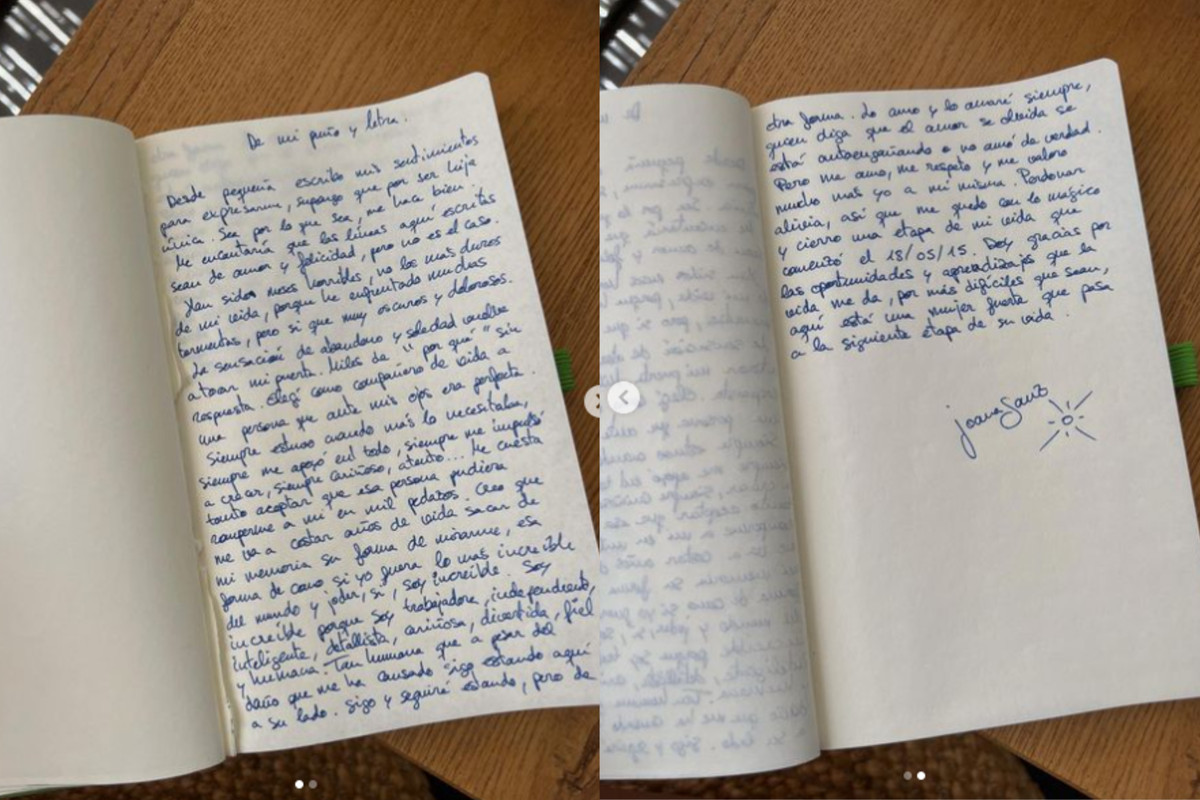 De mi puño y letra.
Desde pequeña escribo mis sentimientos
para expresarme, supongo que por ser hija
única. Sea por lo que sea, me hace bien.
Me encantaría que las líneas aquí escritas
sean de amor y felicidad, pero no es el caso.
Han sido meses horribles, no los más duros
de mi vida, porque he enfrentado muchas
tormentas, pero si que muy oscuros y dolorosos.
La sensación de abandono y soledad vuelve
a tocar mi puerta. Miles de "por qué" sin
respuesta. Elegí como compañero de vida a
una persona que ante mis ojos era perfecta.
Siempre estuvo cuando más lo necesitaba,
siempre me apoyó en todo, siempre me impulsó
a crear, siempre cariñoso, atento... Me cuesta
tanto aceptar que esa persona pudiera
romperme a mí en mil pedazos. Creo que
me va a costar años de vida sacar de
mi memoria su forma de mirarme, esa
forma de como si yo fuera lo mas increíble
del mundo y joder, si, soy increíble. Soy
increíble porque soy trabajadora, independiente,
inteligente, detallista, cariñosa, divertida, fiel
y humana. Tan humana que a pesar del
daño que me ha causado sigo estando aquí
a su lado. Sigo y seguiré estando, pero de
otra forma. Lo amo y lo amaré siempre,
quien diga que el amor se olvida se
está autoengañando o no amó de verdad.
Pero me amo, me respeto y me valoro
mucho mas yo a mi misma. Perdonar
alivia, así que me quedo con lo mágico
y cierro una etapa de mi vida que
comenzó el 18/05/15. Doy gracias por
las oportunidades y aprendizajes que la
vida me da, por más difíciles que sean,
aquí está una mujer fuerte que pasa
a la siguiente etapa de su vida.
joana Sanz